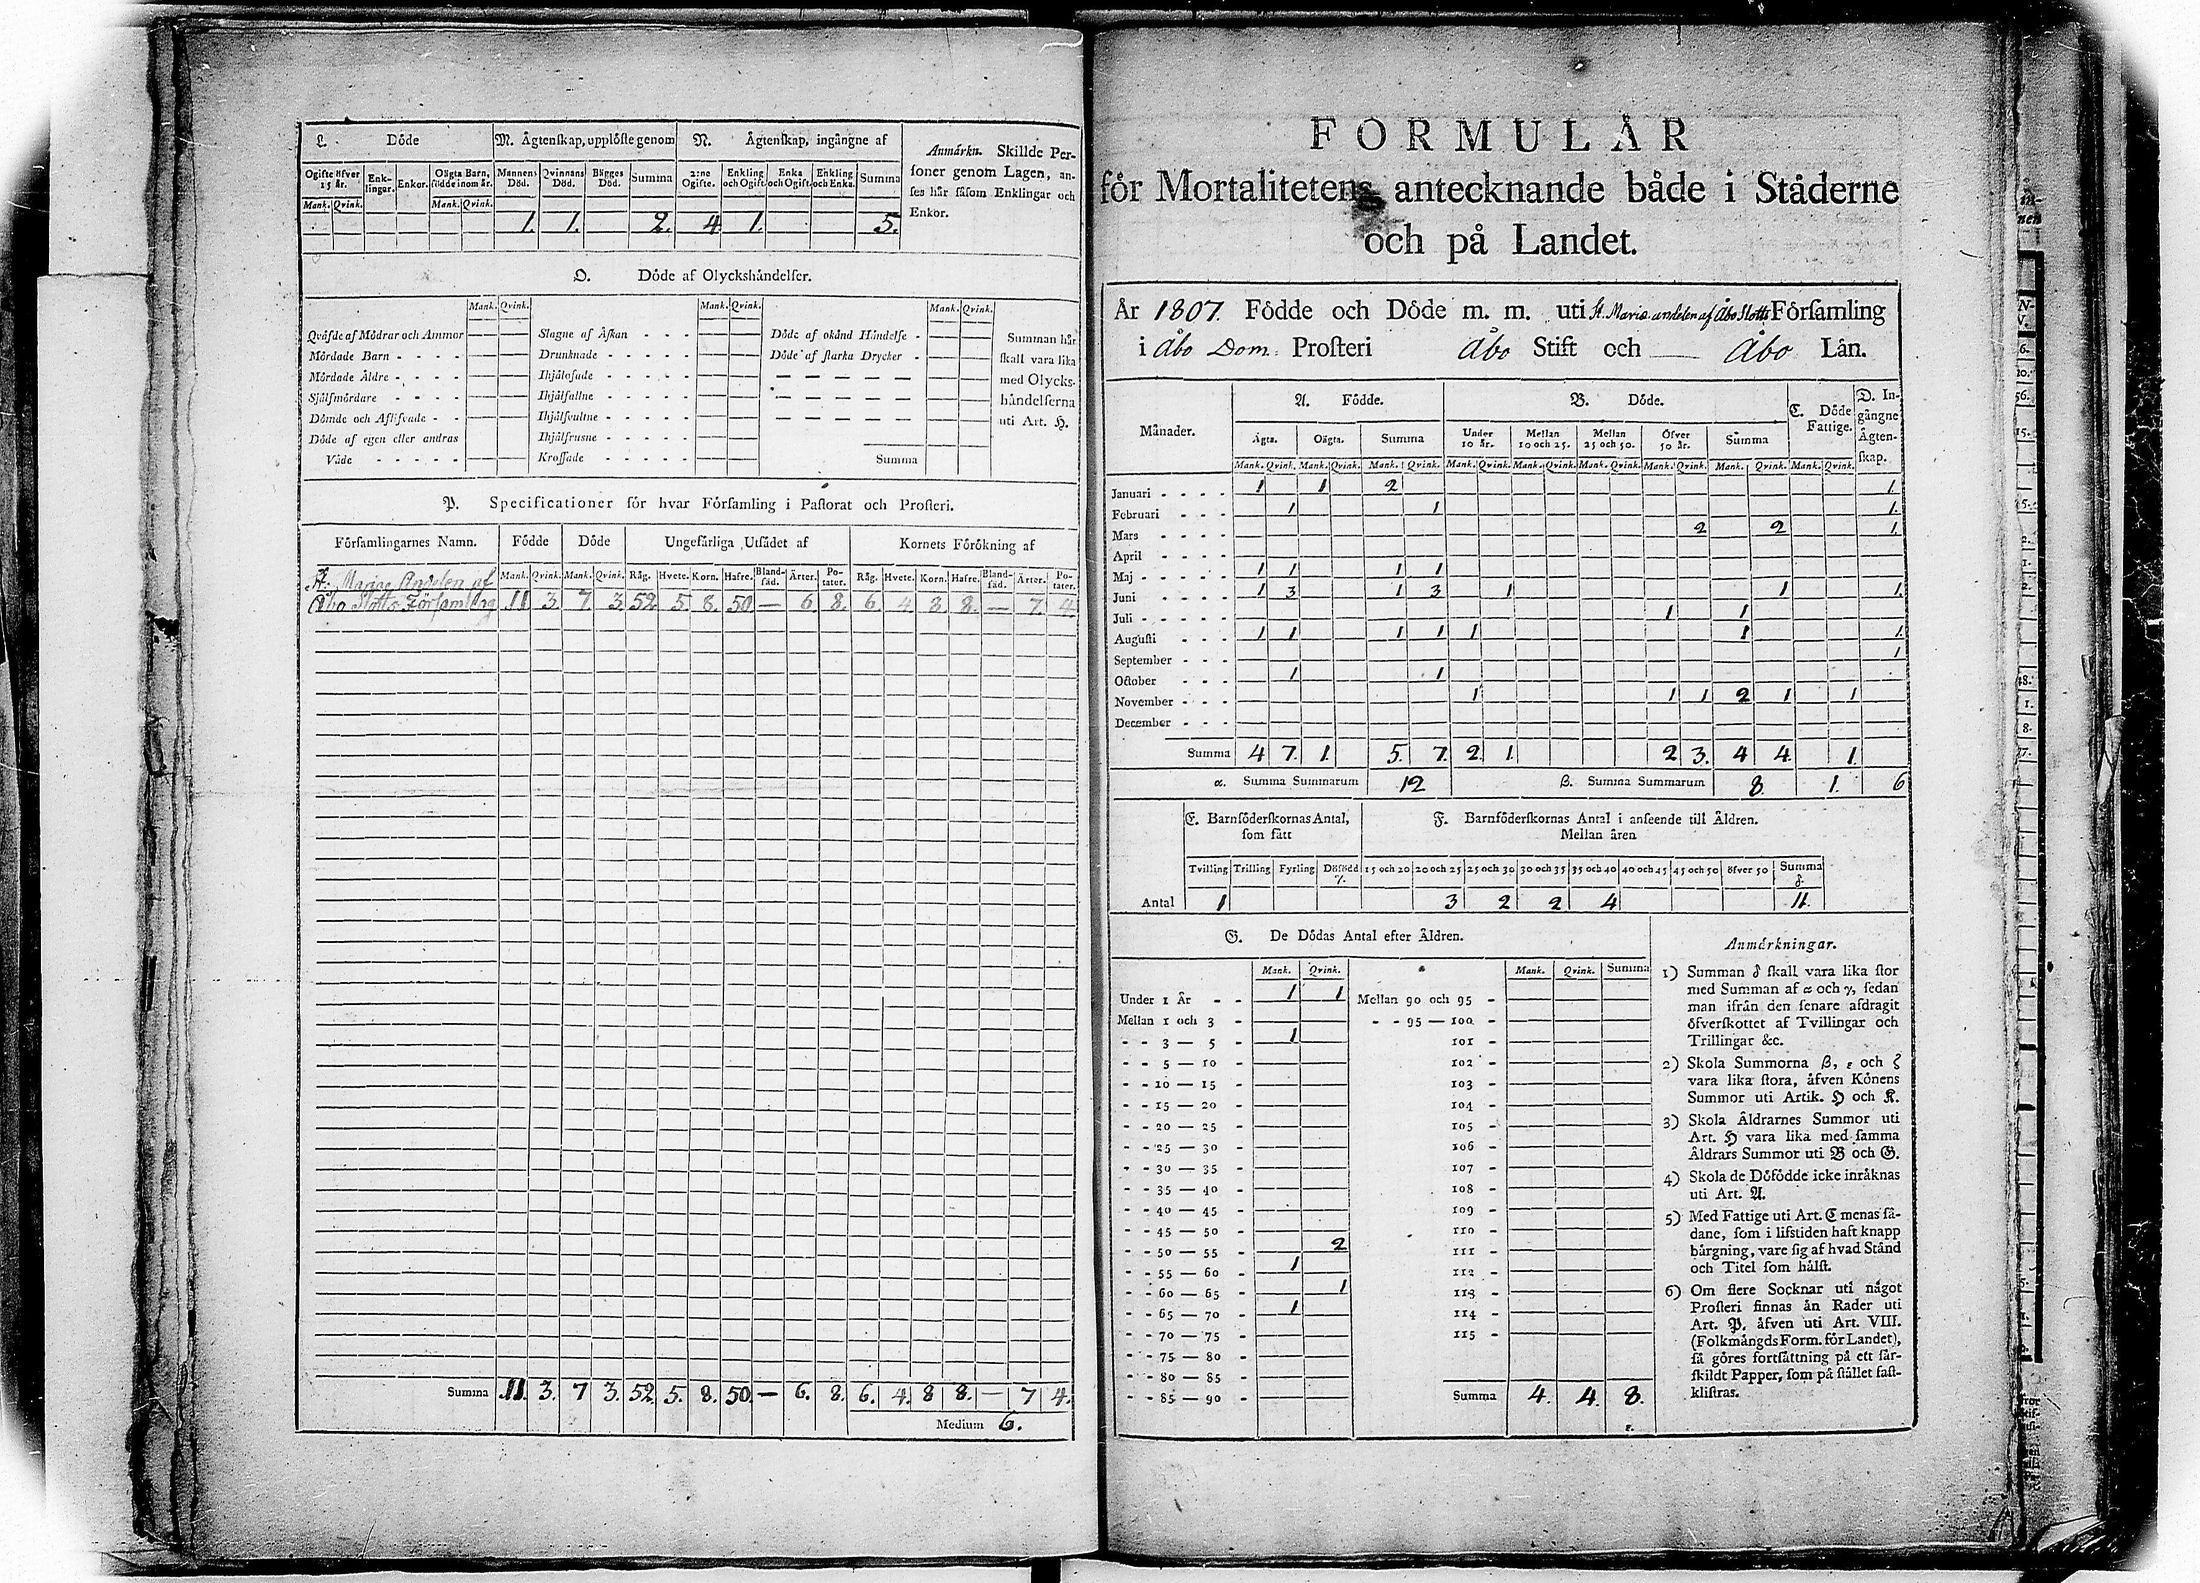 L. Döde M. Ägtenskap, upplöste genom N. Ägtenskap, ingångne af Anmärkn. Skillde Per-
soner genom Lagen, an-
ses här såsom Enklingar och
Enkor.
Ogifte öfver 15 år. Enk-lingar. Enkor. Oägta Barn, födde inom år. Mannens Död. Qvinnans Död. Bägges Död. Summa 2:ne Ogifte. Enkling och Ogift. Enka och Ogift. Enkling och Enka. Summa
Mank. Qvink. Mank. Qvink.
1. 1. 2. 4 1. 5.
O. Döde af Olyckshändelser.
Mank. Qvink. Mank. Qvink. Mank. Qvink.
Qväfde af Mödrar och Ammor Slagne af Åskan - - - Döde af okänd Händelse - Summan här
Mördade Barn - - - - Drunknade - - - - - Döde af starka Drycker - skall vara lika
Mördade Äldre - - - - Ihjälosade - - - - - med Olycks-
Sjålfmördare - - - - Ihjälfallne - - - - händelserna
Dömde och Aflifvade - - Ihjälsvultne - - - - uti Art. H.
Döde af egen eller andras Ihjälfrusne - - - -
Våde - - - - - Krossade - - - - - Summa
P. Specificationer för hvar Församling i Pastorat och Prosteri.
Församlingarnes Namn. Födde Döde Ungefärliga Utsådet af Kornets Förökning af
Mank. Qvink. Mank. Qvink. Råg. Hvete. Korn. Hafre. Bland-säd. Ärter. Po-tater. Råg. Hvete. Korn. Hafre. Bland-säd. Ärter. Po-tater.
St. Mariae Andelen af
Åbo Slotts Församling 11 3. 7. 3. 52. 5. 8. 50 — 6. 8. 6. 4 8 8. — 7. 4.
Summa 11. 3. 7 3. 52. 5. 8. 50. — 6. 8. 6. 4. 8 8. — 7 4.
Medium 6.
FORMULÄR
för Mortalitetens antecknande både i Städerne
och på Landet.
År 1807. Födde och Döde m. m. uti St. Mariæ andelen af Åbo Slotts Församling
i Åbo Dom Prosteri Åbo Stift och Åbo Län.
Månader. A. Födde. B. Döde. C. Döde Fattige. D. In-gångne Ägten-skap.
Ägta. Oägta. Summa Under 10 år. Mellan 10 och 25. Mellan 25 och 50. Öfver 50 år. Summa
Mank. Qvink. Mank. Qvink. Mank. Qvink. Mank. Qvink. Mank. Qvink. Mank. Qvink. Mank. Qvink. Mank. Qvink. Mank. Qvink.
Januari - - - - 1 1 2 1.
Februari - - - 1 1 1.
Mars - - - 2 2 1.
April - - - -
Maj - - - - - 1 1 1 1
Juni - - - - 1 3 1 3 1 1 1.
Juli - - - - - 1 1
Augusti - - - 1 1 1 1 1 1 1.
September - - - 1
October - - - 1 1
November - - - 1 1 1 2 1 1
December - - -
Summa 4 7. 1. 5. 7. 2. 1. 2 3. 4 4. 1.
α. Summa Summarum 12 β. Summa Summarum 8. 1. 6
E. Barnföderskornas Antal, som fått F. Barnföderskornas Antal i anseende till Äldren.
Mellan åren
Tvilling Trilling Fyrling Döfödd γ. 15 och 20 20 och 25 25 och 30 30 och 35 35 och 40 40 och 45 45 och 50 öfver 50 Summa δ.
Antal 1 3 2 2 4 11.
G. De Dödas Antal efter Åldren.
Mank. Qvink. Mank. Qvink. Summa
Under 1 År - - 1 1 Mellan 90 och 95 -
Mellan 1 och 3 - - - 95 — 100 -
- - 3 — 5 - 1 101 -
- - 5 — 10 - 102 -
- - 10 — 15 - 103 -
- - 15 — 20 - 104 -
- - 20 — 25 - 105 -
- - 25 — 30 - 106 -
- - 30 — 35 - 107 -
- - 35 — 40 - 108 -
- - 40 — 45 - 109 -
- - 45 — 50 - 110 -
- - 50 — 55 - 2 111 -
- - 55 — 60 - 1 112 -
- - 60 — 65 - 1 113 -
- - 65 — 70 - 1 114 -
- - 70 — 75 - 115 -
- - 75 — 80 -
- - 80 — 85 -
- - 85 — 90 - Summa 4. 4. 8.
ε.
Anmärkningar.
1) Summan δ skall vara lika stor
med Summan af α och γ, sedan
man ifrån den senare afdragit
öfverskottet af Tvillingar och
Trillingar &c.
2) Skola Summorna β, ε och ζ
vara lika stora, äfven Könens
Summor uti Artik. H och K.
3) Skola Åldrarnes Summor uti
Art. H vara lika med samma
Åldrars Summor uti B och G.
4) Skola de Döfödde icke inräknas
uti Art. A.
5) Med Fattige uti Art. C menas så-
dane, som i lifstiden haft knapp
bärgning, vare sig af hvad Stånd
och Titel som hälst.
6) Om flere Socknar uti något
Prosteri finnas än Rader uti
Art. P. äfven uti Art. VIII.
(Folkmängds Form. för Landet),
så göres fortsättning på ett sär-
skildt Papper, som på stället fast-
klistras.